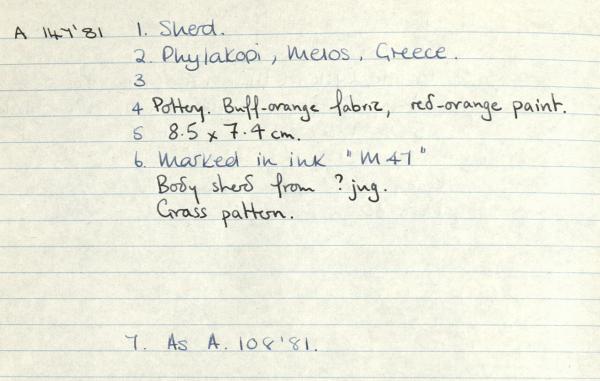 A 147'81 1. Sherd.
2. Phylakopi, Melos, Greece.
3
4 Pottery. Buff-orange fabric, red-orange paint.
5 8.5 x 7.4 cm.
6. Marked in ink "M47"
Body sherd from ? jug.
Grass pattern.
7. As A. 108'81.